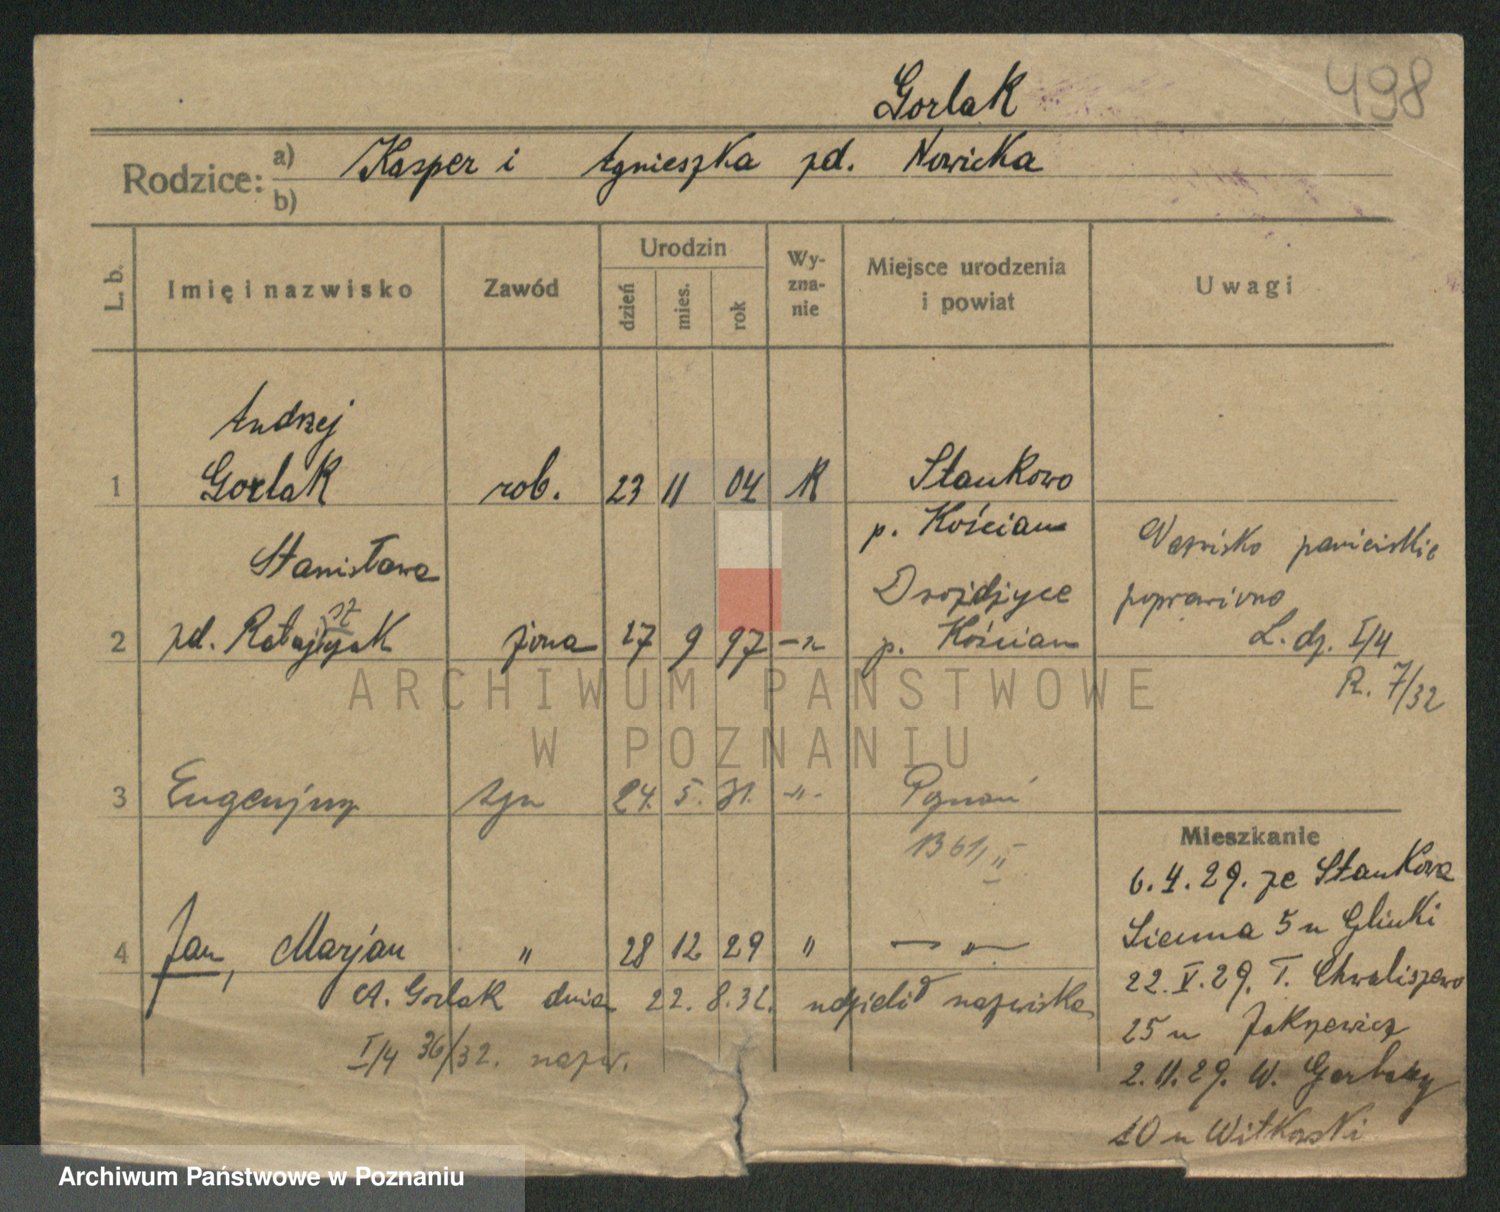 498
Gorlak
Rodzice: a) Kasper i Agnieszka zd. Nowicka
b)
L. b. Imię i nazwisko Zawód Urodzin dzień mies. rok Wyznanie Miejsce urodzenia i powiat Uwagi
Andrzej
1 Gorlak rob. 23 11 04 R Stankowo
p. Kościan
Stanisława Nazwisko panieńskie
Drożdżyce poprawiono
2 zd. Ratajczak żona 27 9 97 -"- p. Kościan L. dz. I/4
R. 7/32
ARCHIWUM PAŃSTWOWE
W POZNANIU
3 Eugenjusz syn 24. 5. 31. -"- Poznań
Mieszkanie
6.4.29. ze Stankowa
Sienna 5 u Glinki
4 Jan, Marjan " 28 12 29 " — " —
22.V.29. T. Chwaliszewo
A. Gorlak dnia 22.8.32. udzielił nazwiska
25 u
I/4 36/32. nazw.
2.11.29. W. Garbary
10 u Witkowski
Archiwum Państwowe w Poznaniu